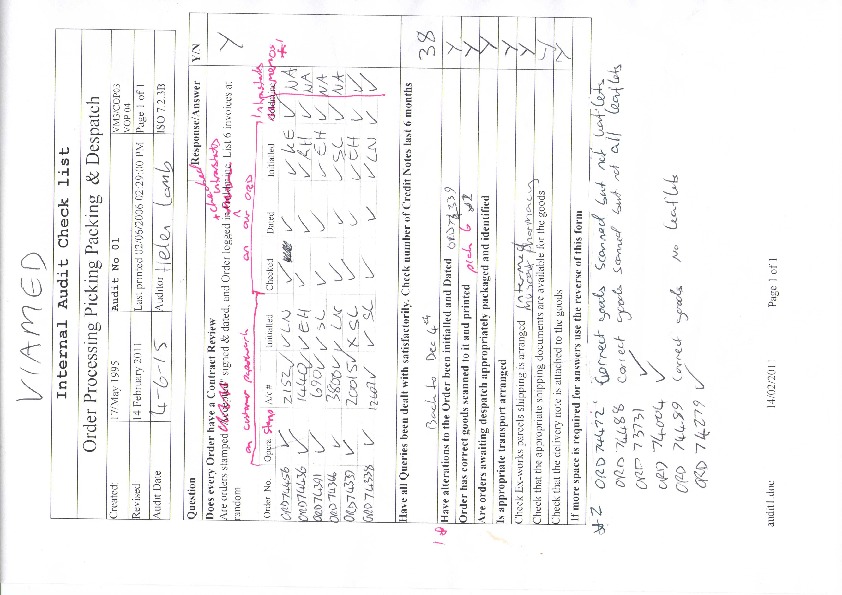 VIAMED
Internal Audit Check list
Order Processing Picking Packing & Despatch
Created: 17/May 1995 Audit No 01 VM3/COP03
VOP 04
Revised 14 February 2011 Last printed 02/06/2006 02:29:00 PM Page 1 of 1
Audit Date 4-6-15 Auditor Helen Lamb ISO 7.2.3B
Question Response/Answer Y/N
Does every Order have a Contract Review
Are orders stamped signed & dated, and Order logged in List 6 invoices at random Y
+ checked
on customer paperwork on our ORD
Order No. Opera Stamp A/c # Initialled Checked Dated Initialled
ORD74456 ✓ 2152 ✓ LN ✓ ✓ KE ✓ NA
ORD74436 ✓ 1440 ✓ EH ✓ ✓ ✓ RH ✓ NA
ORD74391 ✓ 690 ✓ SL ✓ ✓ ✓ EH ✓ NA
✓ ✓ ✓ ✓ SL ✓ NA
✓ X SL ✓ ✓ ✓ EH ✓ ✓
✓ ✓ SL ✓ ✓ ✓ LN ✓ ✓
Have all Queries been dealt with satisfactorily. Check number of Credit Notes last 6 months
Back to Dec 4th 38
Have alterations to the Order been initialled and Dated Y
Order has correct goods scanned to it and printed pick 6 #2 Y
Are orders awaiting despatch appropriately packaged and identified Y
Is appropriate transport arranged Y
Check Ex-works parcels shipping is arranged Y
Check that the appropriate shipping documents are available for the goods
Check that the delivery note is attached to the goods Y
If more space is required for answers use the reverse of this form
#2 ORD 74472 Correct goods scanned but not leaflets
ORD 74488 Correct goods scanned but not all leaflets
ORD 73731 ✓
ORD 74004 ✓
ORD 74489 Correct goods no leaflets
ORD 74279 ✓
audit1.doc 14/02/2011 Page 1 of 1